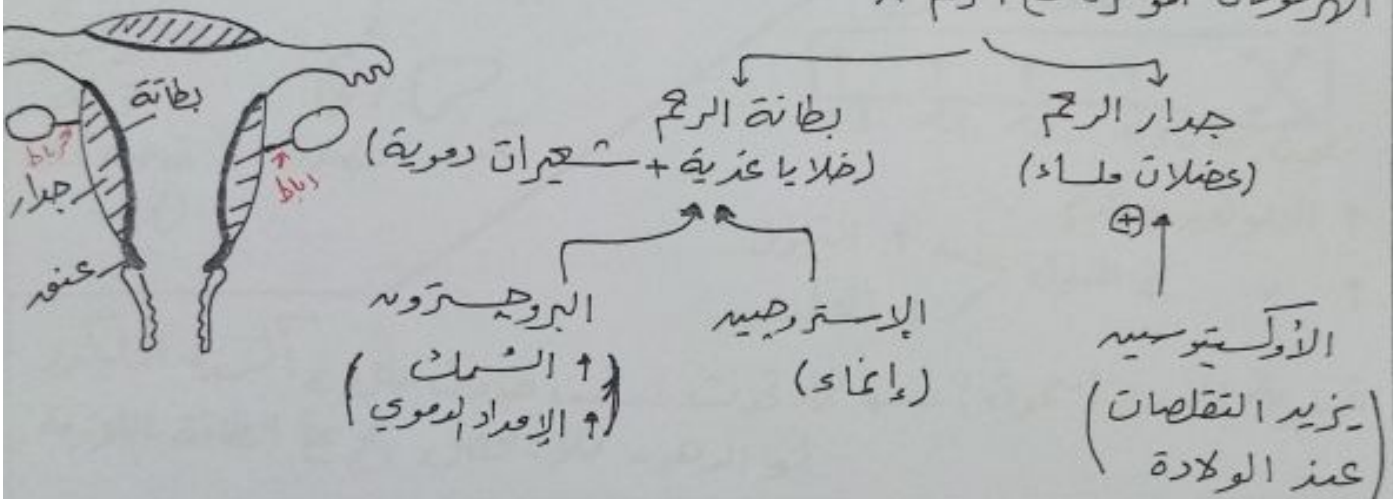 الهرمونات المؤثرة
جدار الرحم
(عضلات ملساء)
⊕
الأوكسيتوسين
(يزيد التقلصات
عند الولادة)
بطانة الرحم
(خلايا غدية + شعيرات دموية)
الإستروجين
(إنماء)
البروجسترون
(↑ السُمك
↑ الإمداد الدموي)
بطانة
رباط
جدار
عنق
رباط